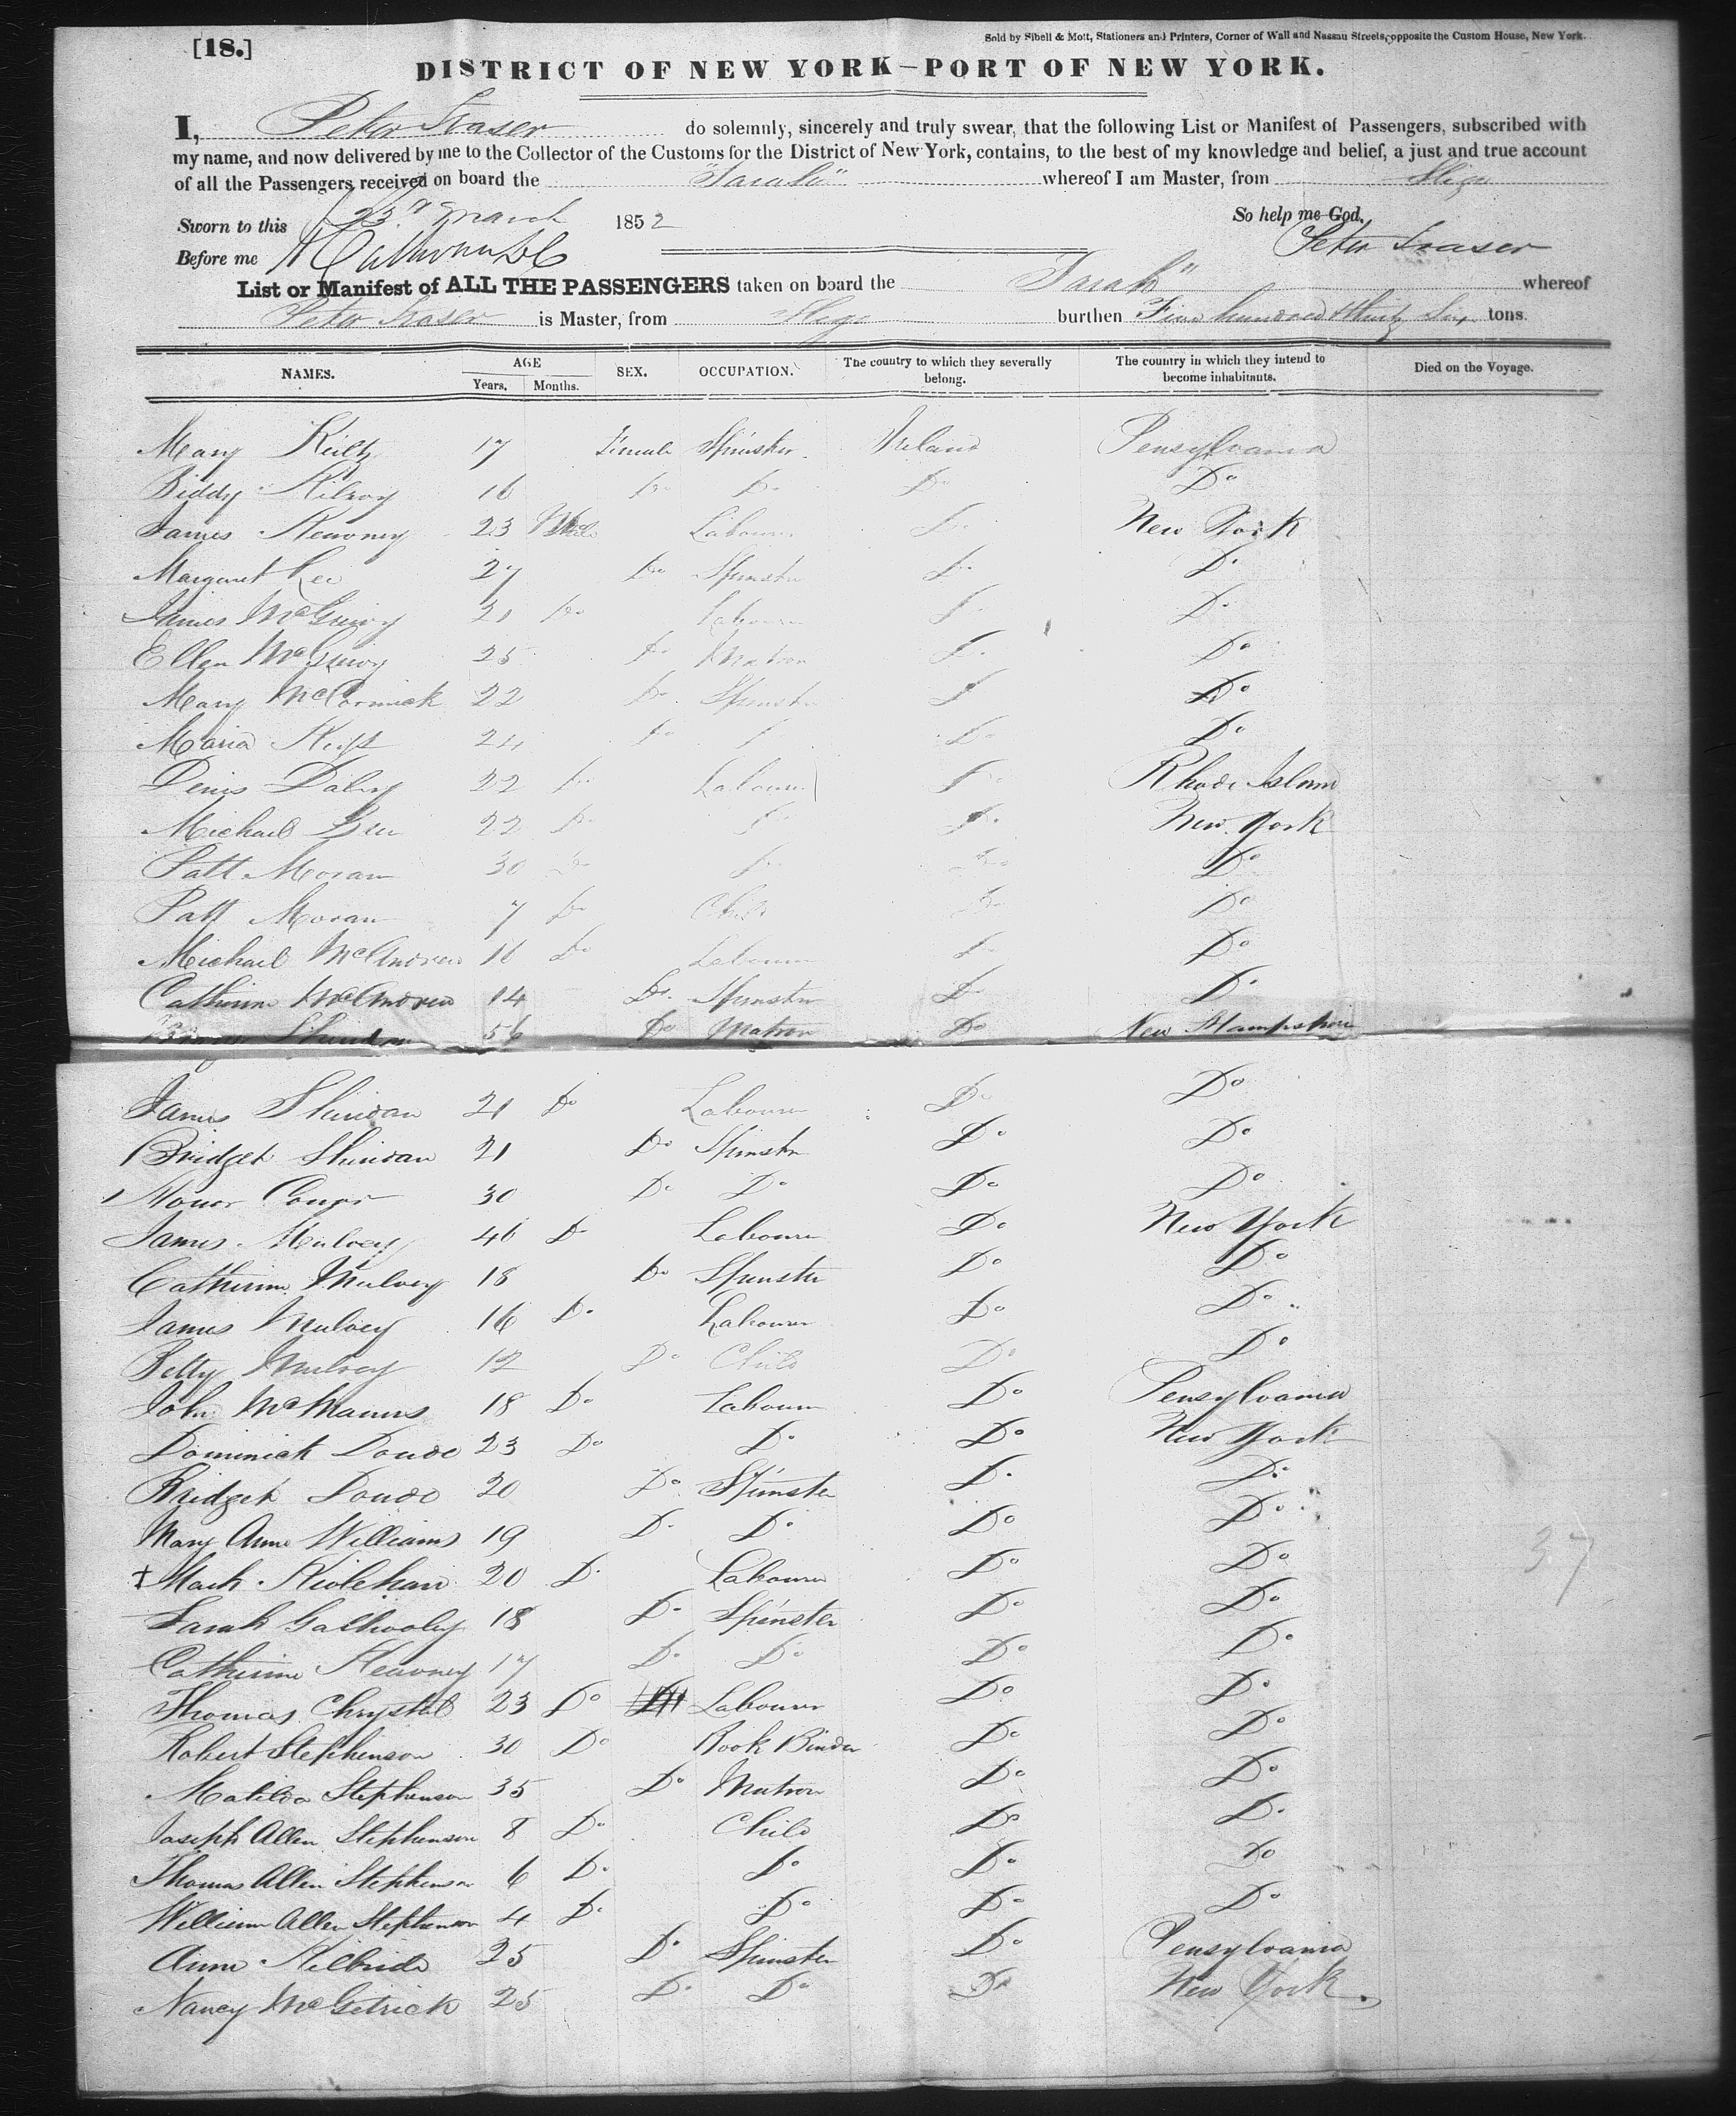 [18.]
Sold by Sibell & Mott, Stationers and Printers, Corner of Wall and Nassau Streets, opposite the Custom House, New York.
DISTRICT OF NEW YORK—PORT OF NEW YORK.
I, Peter Fraser do solemnly, sincerely and truly swear, that the following List or Manifest of Passengers, subscribed with
my name, and now delivered by me to the Collector of the Customs for the District of New York, contains, to the best of my knowledge and belief, a just and true account
of all the Passengers received on board the "Sarah" whereof I am Master, from Sligo
Sworn to this 23rd March 1852 So help me God.
Before me Peter Fraser
List or Manifest of ALL THE PASSENGERS taken on board the "Sarah" whereof
Peter Fraser is Master, from Sligo burthen Five hundred & thirty Six tons.
NAMES. AGE Years, Months. SEX. OCCUPATION. The country to which they severally belong. The country in which they intend to become inhabitants. Died on the Voyage.
Mary 17 Female Spinster Ireland Pensylvania
Biddy Kilroy 16 Do Do Do Do
James Kearney 23 Male Labourer Do New York
Margaret Lee 27 Do Spinster Do Do
James 21 Do Labourer Do Do
Ellen 25 Do Matron Do Do
Mary McCormick 22 Do Spinster Do Do
Maria 24 Do Do Do Do
Denis Daley 22 Do Labourer Do Rhode Island
Michael 22 Do Do Do New York
Patt Moran 30 Do Do Do Do
Patt Moran 7 Do Child Do Do
Michael McAndrew 16 Do Labourer Do Do
Catherine McAndrew 14 Do Spinster Do Do
Sheridan 56 Do Matron Do New Hampshire
James Sheridan 21 Do Labourer Do Do
Bridget Sheridan 21 Do Spinster Do Do
Honor 30 Do Do Do Do
James Mulvey 46 Do Labourer Do New York
Catherine Mulvey 18 Do Spinster Do Do
James Mulvey 16 Do Labourer Do Do
Betty Mulvey 12 Do Child Do Do
John McManus 18 Do Labourer Do Pensylvania
Dominick Doudo 23 Do Do Do New York
Bridget Doudo 20 Do Spinster Do Do
Mary Anne Williams 19 Do Do Do Do
Mark 20 Do Labourer Do Do
Sarah Galhooly 18 Do Spinster Do Do
Catherine Kearney 17 Do Do Do Do
Thomas Chrystal 23 Do Labourer Do Do
Robert Stephenson 30 Do Book Binder Do Do
Matilda Stephenson 35 Do Matron Do Do
Joseph Allen Stephenson 8 Do Child Do Do
Thomas Allen Stephenson 6 Do Do Do Do
William Allen Stephenson 4 Do Do Do Do
Anne Kilbride 25 Do Spinster Do Pensylvania
Nancy McGetrick 25 Do Do Do New York
37